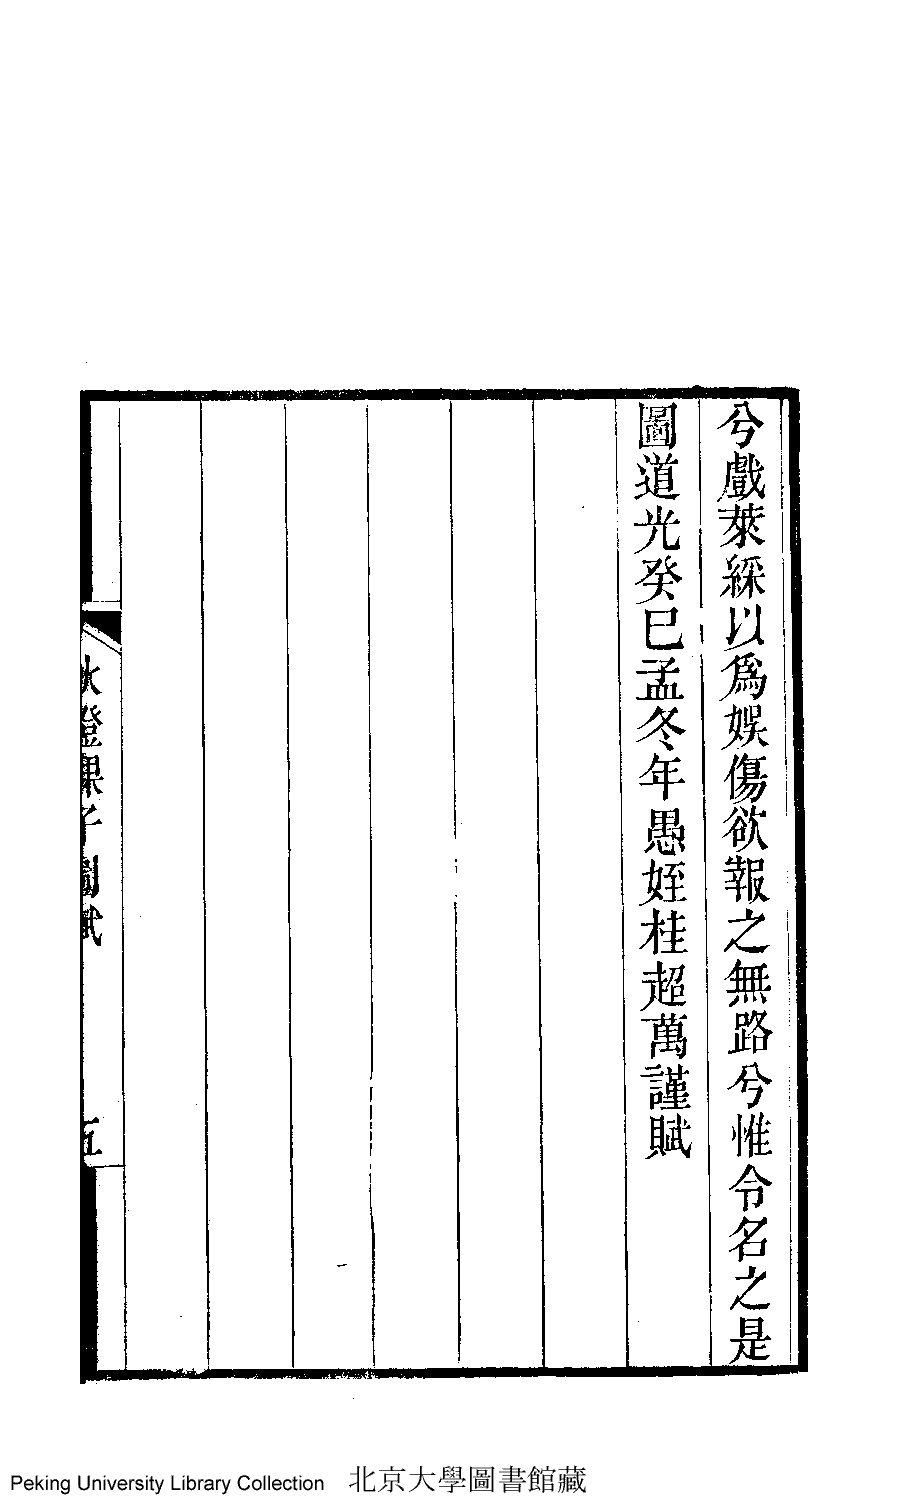 兮戲萊綵以爲娛傷欲報之無路兮惟令名之是
圖道光癸巳孟冬年愚姪桂超萬謹賦
秋燈課子圖賦
五
Peking University Library Collection 北京大學圖書館藏